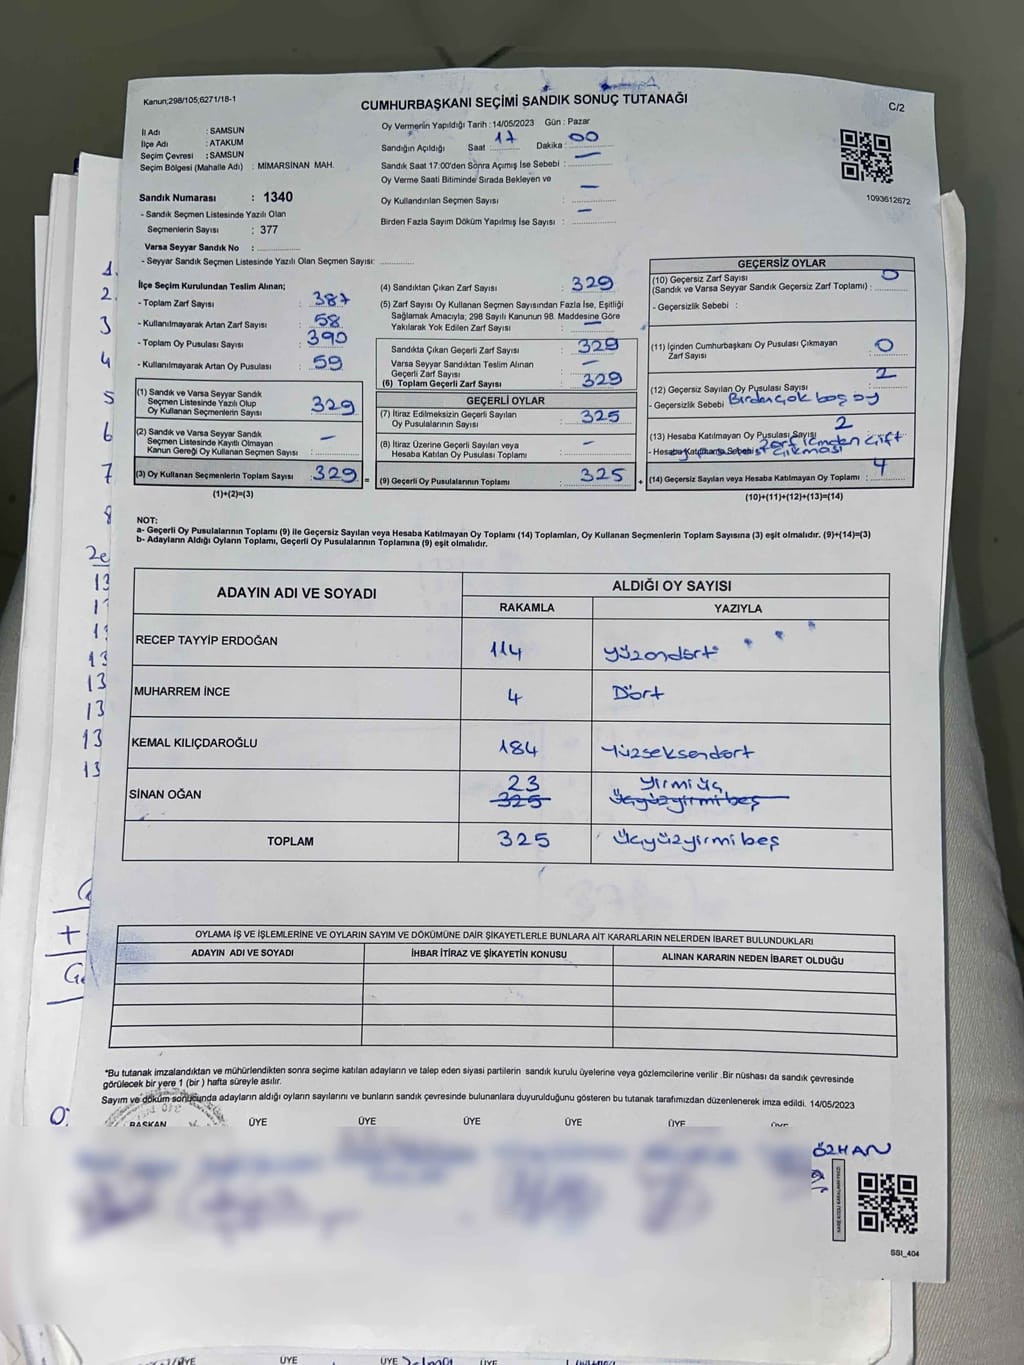 Kanun;298/105;6271/18-1
CUMHURBAŞKANI SEÇİMİ SANDIK SONUÇ TUTANAĞI
C/2
İl Adı : SAMSUN
İlçe Adı : ATAKUM
Seçim Çevresi : SAMSUN
Seçim Bölgesi (Mahalle Adı) : MİMARSİNAN MAH.
Sandık Numarası : 1340
- Sandık Seçmen Listesinde Yazılı Olan
Seçmenlerin Sayısı : 377
Varsa Seyyar Sandık No :
- Seyyar Sandık Seçmen Listesinde Yazılı Olan Seçmen Sayısı:
Oy Vermenin Yapıldığı Tarih : 14/05/2023 Gün : Pazar
Sandığın Açıldığı Saat 17 Dakika : 00
Sandık Saat 17:00'den Sonra Açımış İse Sebebi : —
Oy Verme Saati Bitiminde Sırada Bekleyen ve
Oy Kullandırılan Seçmen Sayısı : —
Birden Fazla Sayım Döküm Yapılmış İse Sayısı : —
1093612672
İlçe Seçim Kurulundan Teslim Alınan;
- Toplam Zarf Sayısı : 387
- Kullanılmayarak Artan Zarf Sayısı : 58
- Toplam Oy Pusulası Sayısı : 390
- Kullanılmayarak Artan Oy Pusulası : 59
(1) Sandık ve Varsa Seyyar Sandık
Seçmen Listesinde Yazılı Olup
Oy Kullanan Seçmenlerin Sayısı : 329
(2) Sandık ve Varsa Seyyar Sandık
Seçmen Listesinde Kayıtlı Olmayan
Kanun Gereği Oy Kullanan Seçmen Sayısı : —
(3) Oy Kullanan Seçmenlerin Toplam Sayısı : 329 =
(1)+(2)=(3)
(4) Sandıktan Çıkan Zarf Sayısı : 329
(5) Zarf Sayısı Oy Kullanan Seçmen Sayısından Fazla İse, Eşitliği
Sağlamak Amacıyla; 298 Sayılı Kanunun 98. Maddesine Göre
Yakılarak Yok Edilen Zarf Sayısı : —
Sandıkta Çıkan Geçerli Zarf Sayısı : 329
Varsa Seyyar Sandıktan Teslim Alınan
Geçerli Zarf Sayısı : —
(6) Toplam Geçerli Zarf Sayısı : 329
GEÇERLİ OYLAR
(7) İtiraz Edilmeksizin Geçerli Sayılan
Oy Pusulalarının Sayısı : 325
(8) İtiraz Üzerine Geçerli Sayılan veya
Hesaba Katılan Oy Pusulalarının Toplamı : —
(9) Geçerli Oy Pusulalarının Toplamı : 325 +
GEÇERSİZ OYLAR
(10) Geçersiz Zarf Sayısı
(Sandık ve Varsa Seyyar Sandık Geçersiz Zarf Toplamı) : 0
- Geçersizlik Sebebi :
(11) İçinden Cumhurbaşkanı Oy Pusulası Çıkmayan
Zarf Sayısı : 0
(12) Geçersiz Sayılan Oy Pusulası Sayısı : 2
- Geçersizlik Sebebi Birden çok boş oy
(13) Hesaba Katılmayan Oy Pusulası Sayısı 2
- Hesaba Katılmama Sebebi : zarf içinden çift
çıkması
(14) Geçersiz Sayılan veya Hesaba Katılmayan Oy Toplamı : 4
(10)+(11)+(12)+(13)=(14)
NOT:
a- Geçerli Oy Pusulalarının Toplamı (9) ile Geçersiz Sayılan veya Hesaba Katılmayan Oy Toplamı (14) Toplamları, Oy Kullanan Seçmenlerin Toplam Sayısına (3) eşit olmalıdır. (9)+(14)=(3)
b- Adayların Aldığı Oyların Toplamı, Geçerli Oy Pusulalarının Toplamına (9) eşit olmalıdır.
ADAYIN ADI VE SOYADI
ALDIĞI OY SAYISI
RAKAMLA YAZIYLA
RECEP TAYYİP ERDOĞAN 114 Yüzondört
MUHARREM İNCE 4 Dört
KEMAL KILIÇDAROĞLU 184 Yüzseksendört
SİNAN OĞAN 23 Yirmi üç
325 Üçyüzyirmi beş
TOPLAM 325 Üçyüzyirmi beş
OYLAMA İŞ VE İŞLEMLERİNE VE OYLARIN SAYIM VE DÖKÜMÜNE DAİR ŞİKAYETLERLE BUNLARA AİT KARARLARIN NELERDEN İBARET BULUNDUKLARI
ADAYIN ADI VE SOYADI İHBAR İTİRAZ VE ŞİKAYETİN KONUSU ALINAN KARARIN NEDEN İBARET OLDUĞU
*Bu tutanak imzalandıktan ve mühürlendikten sonra seçime katılan adayların ve talep eden siyasi partilerin sandık kurulu üyelerine veya gözlemcilerine verilir .Bir nüshası da sandık çevresinde
görülecek bir yere 1 (bir ) hafta süreyle asılır.
Sayım ve döküm sonucunda adayların aldığı oyların sayılarını ve bunların sandık çevresinde bulunanlara duyurulduğunu gösteren bu tutanak tarafımızdan düzenlenerek imza edildi. 14/05/2023
BAŞKAN ÜYE ÜYE ÜYE ÜYE ÜYE ÜYE
ÖZHAN
SSI_404
1.
2.
3
4
5
6
7
8
13
13
13
13
13
13
+
ÜYE ÜYE ÜYE ÜYE